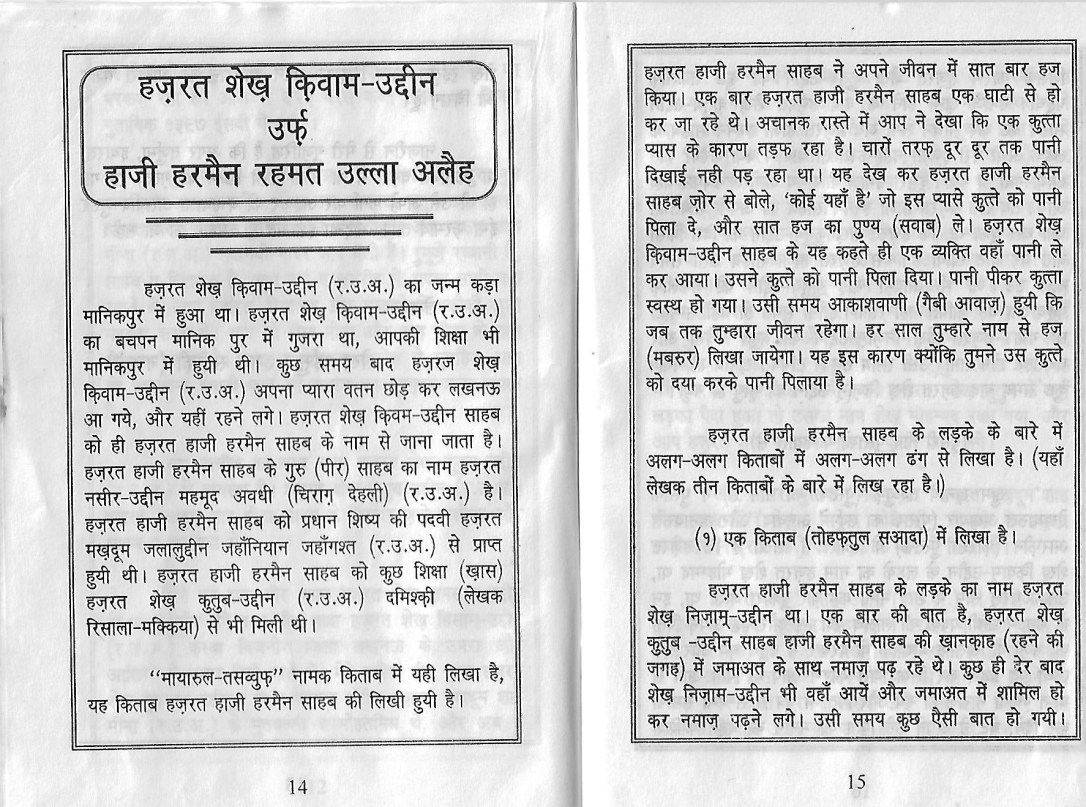 हज़रत शेख़ क़िवाम-उद्दीन
उर्फ़
हाजी हरमैन रहमत उल्ला अलैह
हज़रत शेख़ क़िवाम-उद्दीन (र.उ.अ.) का जन्म कड़ा
मानिकपुर में हुआ था। हज़रत शेख़ क़िवाम-उद्दीन (र.उ.अ.)
का बचपन मानिक पुर में गुजरा था, आपकी शिक्षा भी
मानिकपुर में हुयी थी। कुछ समय बाद हज़रज शेख़
क़िवाम-उद्दीन (र.उ.अ.) अपना प्यारा वतन छोड़ कर लखनऊ
आ गये, और यहीं रहने लगे। हज़रत शेख़ क़िवम-उद्दीन साहब
को ही हज़रत हाजी हरमैन साहब के नाम से जाना जाता है।
हज़रत हाजी हरमैन साहब के गुरु (पीर) साहब का नाम हज़रत
नसीर-उद्दीन महमूद अवधी (चिराग़ देहली) (र.उ.अ.) है।
हज़रत हाजी हरमैन साहब को प्रधान शिष्य की पदवी हज़रत
मख़दूम जलालुद्दीन जहाँनियान जहाँगश्त (र.उ.अ.) से प्राप्त
हुयी थी। हज़रत हाजी हरमैन साहब को कुछ शिक्षा (ख़ास)
हज़रत शेख़ क़ुतुब-उद्दीन (र.उ.अ.) दमिश्क़ी (लेखक
रिसाला-मक्किया) से भी मिली थी।
“मायारुल-तसव्वुफ़” नामक किताब में यही लिखा है,
यह किताब हज़रत हाजी हरमैन साहब की लिखी हुयी है।
14
हज़रत हाजी हरमैन साहब ने अपने जीवन में सात बार हज
किया। एक बार हज़रत हाजी हरमैन साहब एक घाटी से हो
कर जा रहे थे। अचानक रास्ते में आप ने देखा कि एक कुत्ता
प्यास के कारण तड़फ रहा है। चारों तरफ़ दूर दूर तक पानी
दिखाई नही पड़ रहा था। यह देख कर हज़रत हाजी हरमैन
साहब ज़ोर से बोले, ‘कोई यहाँ है’ जो इस प्यासे कुत्ते को पानी
पिला दे, और सात हज का पुण्य (सवाब) ले। हज़रत शेख़
क़िवाम-उद्दीन साहब के यह कहते ही एक व्यक्ति वहाँ पानी ले
कर आया। उसने कुत्ते को पानी पिला दिया। पानी पीकर कुत्ता
स्वस्थ हो गया। उसी समय आकाशवाणी (गैबी आवाज़) हुयी कि
जब तक तुम्हारा जीवन रहेगा। हर साल तुम्हारे नाम से हज
(मबरुर) लिखा जायेगा। यह इस कारण क्योंकि तुमने उस कुत्ते
को दया करके पानी पिलाया है।
हज़रत हाजी हरमैन साहब के लड़के के बारे में
अलग-अलग किताबों में अलग-अलग ढंग से लिखा है। (यहाँ
लेखक तीन किताबों के बारे में लिख रहा है।)
(१) एक किताब (तोहफ़तुल सआदा) में लिखा है।
हज़रत हाजी हरमैन साहब के लड़के का नाम हज़रत
शेख़ निज़ाम्-उद्दीन था। एक बार की बात है, हज़रत शेख़
क़ुतुब -उद्दीन साहब हाजी हरमैन साहब की ख़ानक़ाह (रहने की
जगह) में जमाअत के साथ नमाज़ पढ़ रहे थे। कुछ ही देर बाद
शेख़ निज़ाम-उद्दीन भी वहाँ आयें और जमाअत में शामिल हो
कर नमाज़ पढ़ने लगे। उसी समय कुछ ऐसी बात हो गयी।
15